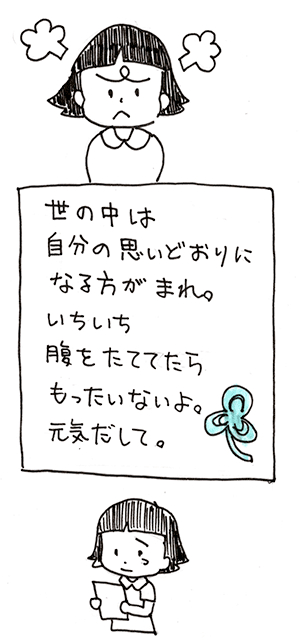 世の中は
自分の思いどおりに
なる方がまれ。
いちいち
腹をたててたら
もったいないよ。
元気だして。